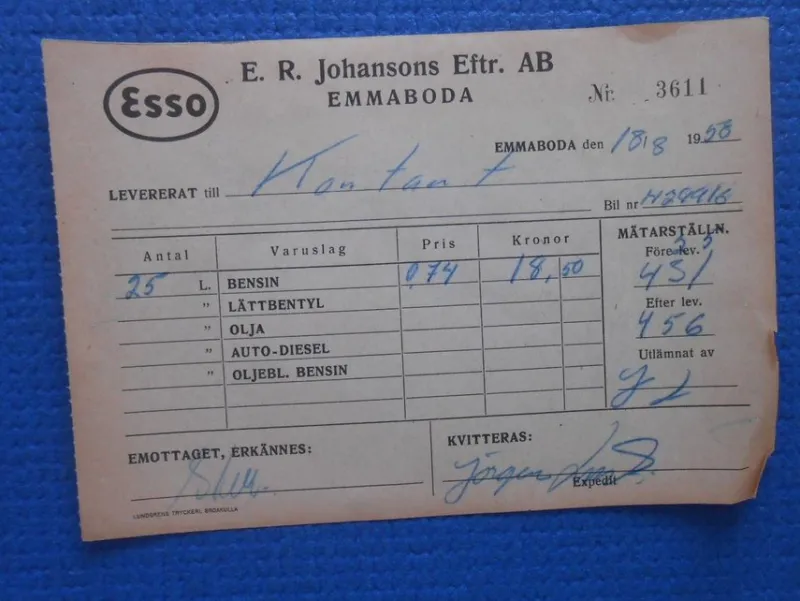 Esso
E. R. Johansons Eftr. AB
EMMABODA
Nr. 3611
EMMABODA den 18/8 1958
LEVERERAT till Kontant
Bil nr
Antal Varuslag Pris Kronor
MÄTARSTÄLLN.
Före lev.
431
25 L. BENSIN 0,74 18,50
" LÄTTBENTYL
Efter lev.
456
" OLJA
" AUTO-DIESEL
Utlämnat av
" OLJEBL. BENSIN
EMOTTAGET, ERKÄNNES:
KVITTERAS:
Jörgen
Expedit
LUNDGRENS TRYCKERI, BROAKULLA